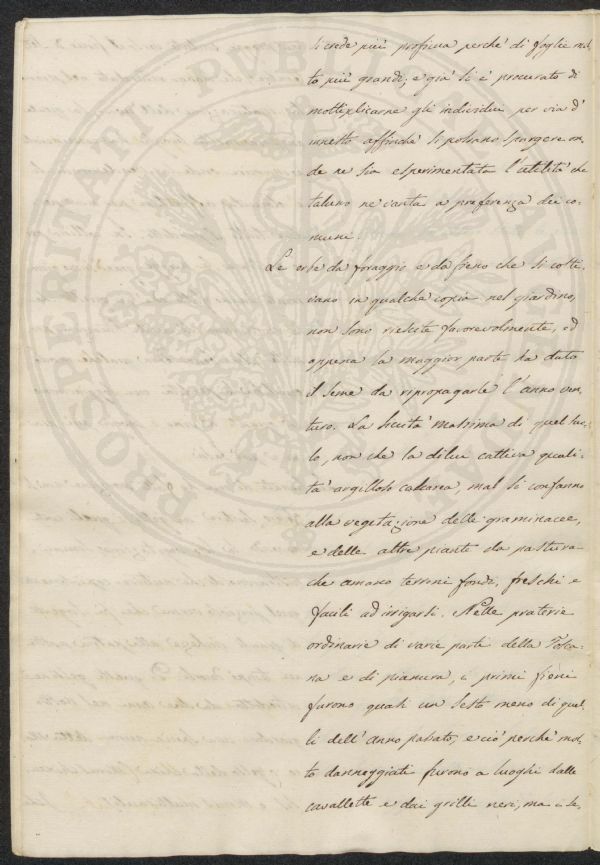 si crede più proficua perchè di foglie mol-
to più grandi; e già si è procurato di
moltiplicarne gli individui per via d'
innesto affinchè si possano spargere on-
de ne sia esperimentata l'utilità che
taluno ne vanta a preferenza dei co-
muni.
Le erbe da foraggio e da fieno che si colti-
vano in qualche copia nel giardino,
non sono riescite favorevolmente, ed
appena la maggior parte ha dato
il seme da ripropagarle l'anno ven-
turo. La siccità massima di quel suo-
lo, non che la di lui cattiva quali-
tà argilloso calcarea, mal si confanno
alla vegetazione delle graminacee,
e delle altre piante da pastura
che amano terreni fondi, freschi e
facili ad irrigarsi. Nelle praterie
ordinarie di varie parti della Tosca-
na e di pianura, i primi fieni
furono quasi un sesto meno di quel-
li dell'anno passato; e ciò perchè mol-
to danneggiati furono a luoghi dalle
cavallette e dai grilli neri, ma i se-
PROSPERITATI PVBLICAE